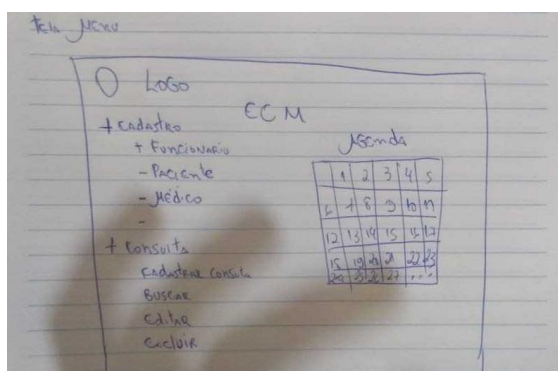 Tela Menu
LOGO
ECM
+ Cadastro
+ Funcionário
- Paciente
- Médico
-
+ Consulta
Cadastrar Consulta
Buscar
Editar
Excluir
Agenda
1 2 3 4 5
6 7 8 9 10 11
12 13 14 15 16 17
18 19 20 21 22 23